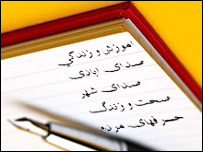 اموزش و زندگي
صداي ابادي
صداي شهر
صحت و زندگي
حرفهاي مردم